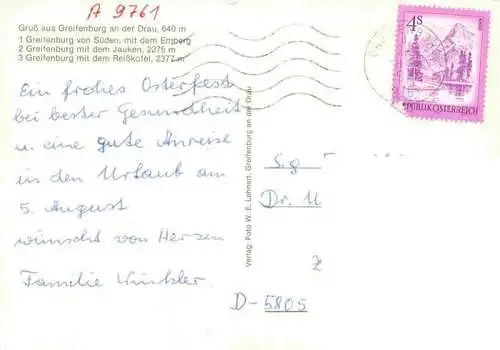 A 9761
Gruß aus Greifenburg an der Drau, 640 m
1 Greifenburg von Süden, mit dem Emberg
2 Greifenburg mit dem Jauken, 2275 m
3 Greifenburg mit dem Reißkofel, 2377 m
Ein frohes Osterfest
bei bester Gesundheit
u. eine gute Anreise
in den Urlaub am
5. August
wünscht von Herzen
Familie Winkler.
Verlag: Foto W. E. Lehnert, Greifenburg an der Drau
4 S
REPUBLIK ÖSTERREICH
S.g
Dr. U
Z
D-5805